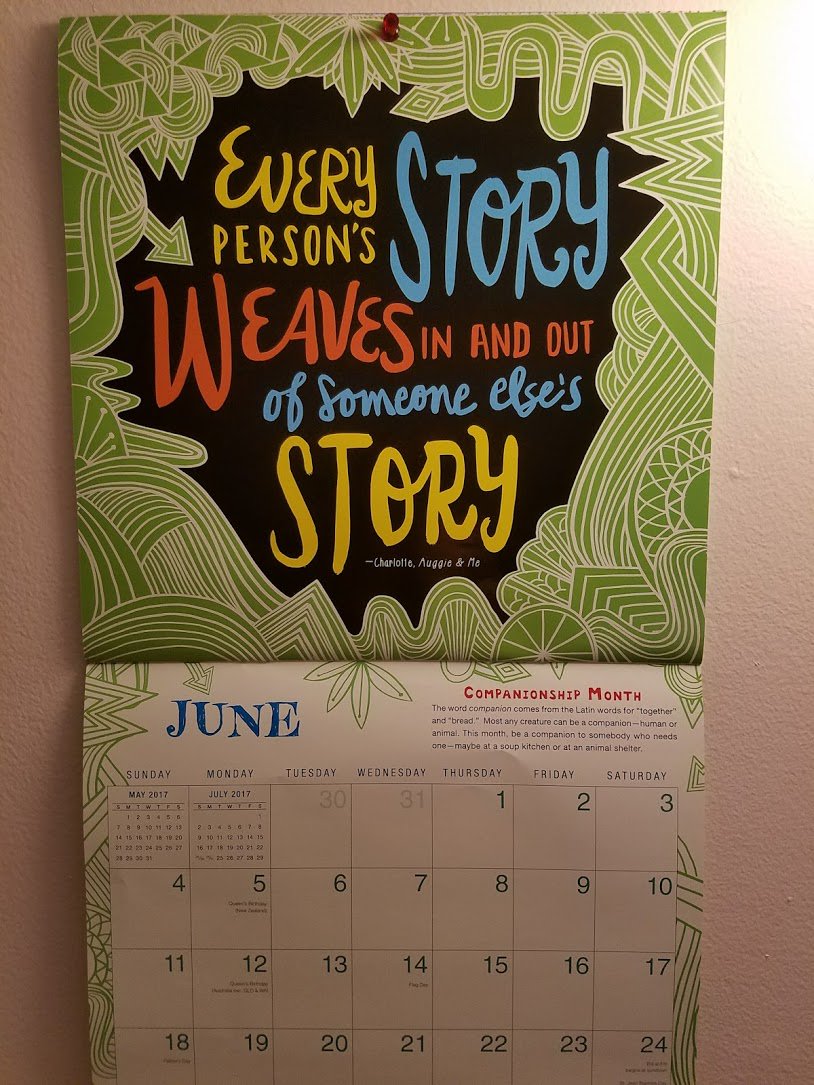 EVERY
PERSON'S
STORY
WEAVES IN AND OUT
of someone else's
STORY
—Charlotte, Auggie & Me
JUNE
COMPANIONSHIP MONTH
The word companion comes from the Latin words for "together"
and "bread." Most any creature can be a companion—human or
animal. This month, be a companion to somebody who needs
one—maybe at a soup kitchen or at an animal shelter.
SUNDAY MONDAY TUESDAY WEDNESDAY THURSDAY FRIDAY SATURDAY
MAY 2017
S M T W T F S
1 2 3 4 5 6
7 8 9 10 11 12 13
14 15 16 17 18 19 20
21 22 23 24 25 26 27
28 29 30 31
JULY 2017
S M T W T F S
1
2 3 4 5 6 7 8
9 10 11 12 13 14 15
16 17 18 19 20 21 22
25 26 27 28 29
30 31 1 2 3
4 5 6 7 8 9 10
Queen's Birthday
(New Zealand)
11 12 13 14 15 16 17
Queen's Birthday
(Australia exc. QLD & WA)
Flag Day
18 19 20 21 22 23 24
Father's Day
begins at sundown